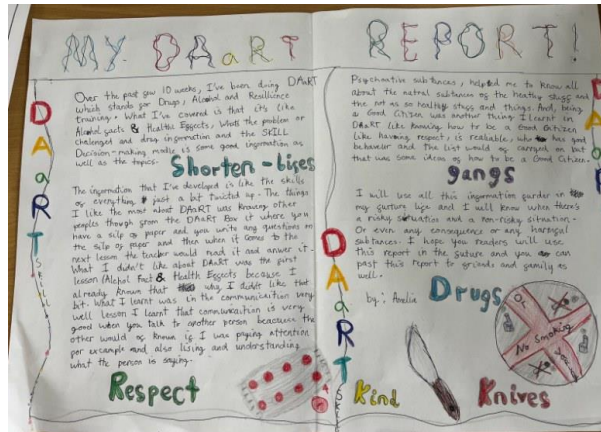 MY DAaRT REPORT!
DAaRT
Over the past few 10 weeks, I've been doing DAaRT
which stands for Drugs, Alcohol and Resillience
training. What I've covered is that its like
Alcohol facts & Health Effects, Whats the problem or
challenged and drug information and the SKILL
Decision-making modle is some good information as
well as the topics.
Shorten-lifes
The information that I've developed is like the skills
of everything just a bit twicted up. The things
I like the most about DAaRT was knowing other
peoples though from the DAaRT Box it where you
have a slip of paper and you write any questions on
the slip of paper and then when it come to the
next lesson the teacher would read it and anwer it.
What I didn't like about DAaRT was the first
lesson (Alcohol Fact & Health Effects because I
already known that why I didn't like that
bit. What I learnt was in the communication very
well lesson I learnt that communication is very
good when you talk to another person beacause the
other would of known if I was paying attention
for example and also lising and understanding
what the person is saying.
Respect
DAaRT
Psychoactive substances, helped me to know all
about the natral substances of the heathy stuff and
the not as so healthy stuff and things. And, being
a Good Citizen was another thing I learnt in
DAaRT like knowing how to be a Good Citizen
like having respect, is realiable, who has good
behavior and the list would of carried on but
that was some ideas of how to be a Good Citizen.
gangs
I will use all this information furder in
my furture life and I will know when there's
a risky situation and a non-risky situation.
Or even any consequence or any harmful
substances. I hope you readers will use
this report in the future and you can
past this report to friends and family as
well.
by: Amelie
Drugs
No Smoking
Kind
Knives